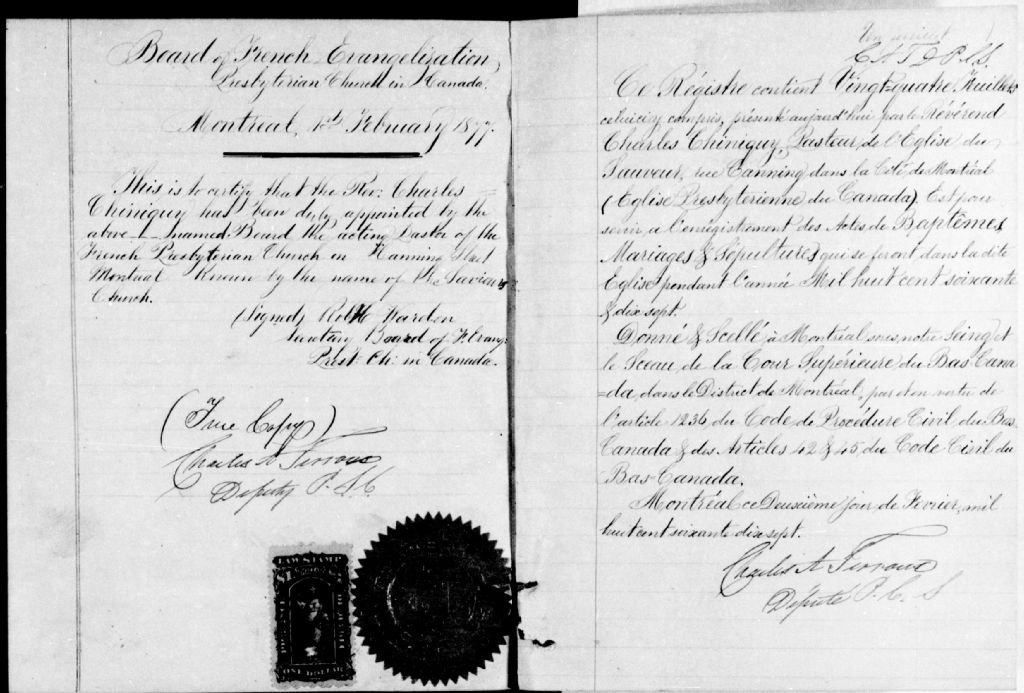 Board of French Evangelization,
Presbyterian Church in Canada.
Montreal, 1st February 1877.
This is to certify that the Rev: Charles
Chiniquy has been duly appointed by the
above named Board the acting Pastor of the
French Presbyterian Church in Canning Street
Montreal Known by the name of the Saviours
Church.
(Signed) Robt H Warden
Secretary Board of F. Evang:
Presb. Ch: in Canada.
(True Copy)
Charles A Terroux
Deputy P. S C
LAW STAMP
ONE DOLLAR
C A T D P S.
Ce Régistre contient Vingt-quatre Feuillets
celuici y compris, présenté aujourd'hui par le Révérend
Charles Chiniquy, Pasteur, de l'Eglise du
Sauveur, rue Canning dans la Cité de Montréal
(Eglise Presbyterienne du Canada). Est pour
servir a l'enregistrement des Actes de Baptêmes
Mariages & Sépultures qui se feront dans la dite
Eglise pendant l'année Mil huit cent soixante
& dix sept.
Donné & Scellé à Montréal sous notre Seing et
le Sceau de la Cour Supérieure du Bas Cana
=da, dans le District de Montréal, par et en vertu de
l'article 1236 du Code de Procédure Civil du Bas
Canada & des Articles 42 & 45, du Code Civil du
Bas-Canada.
Montréal ce Deuxième jour de Fevrier, mil
huit cent soixante dix sept.
Charles A Terroux
Député P. C. S